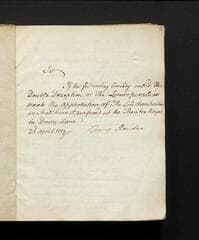 Sir
If the following Comedy call'd The
Double Deception, or The Lovers perplex'd
meets the approbation of The Ld Chamberlain
we shall have it perform'd at the Theatre Royal
in Drury Lane
23 April 1779